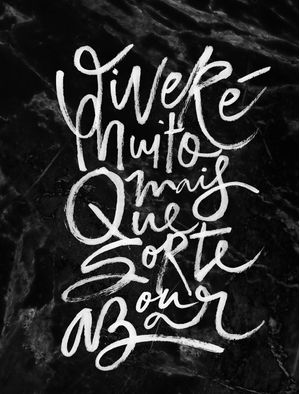 Viver é
muito
mais
Que
sorte
ou
azar